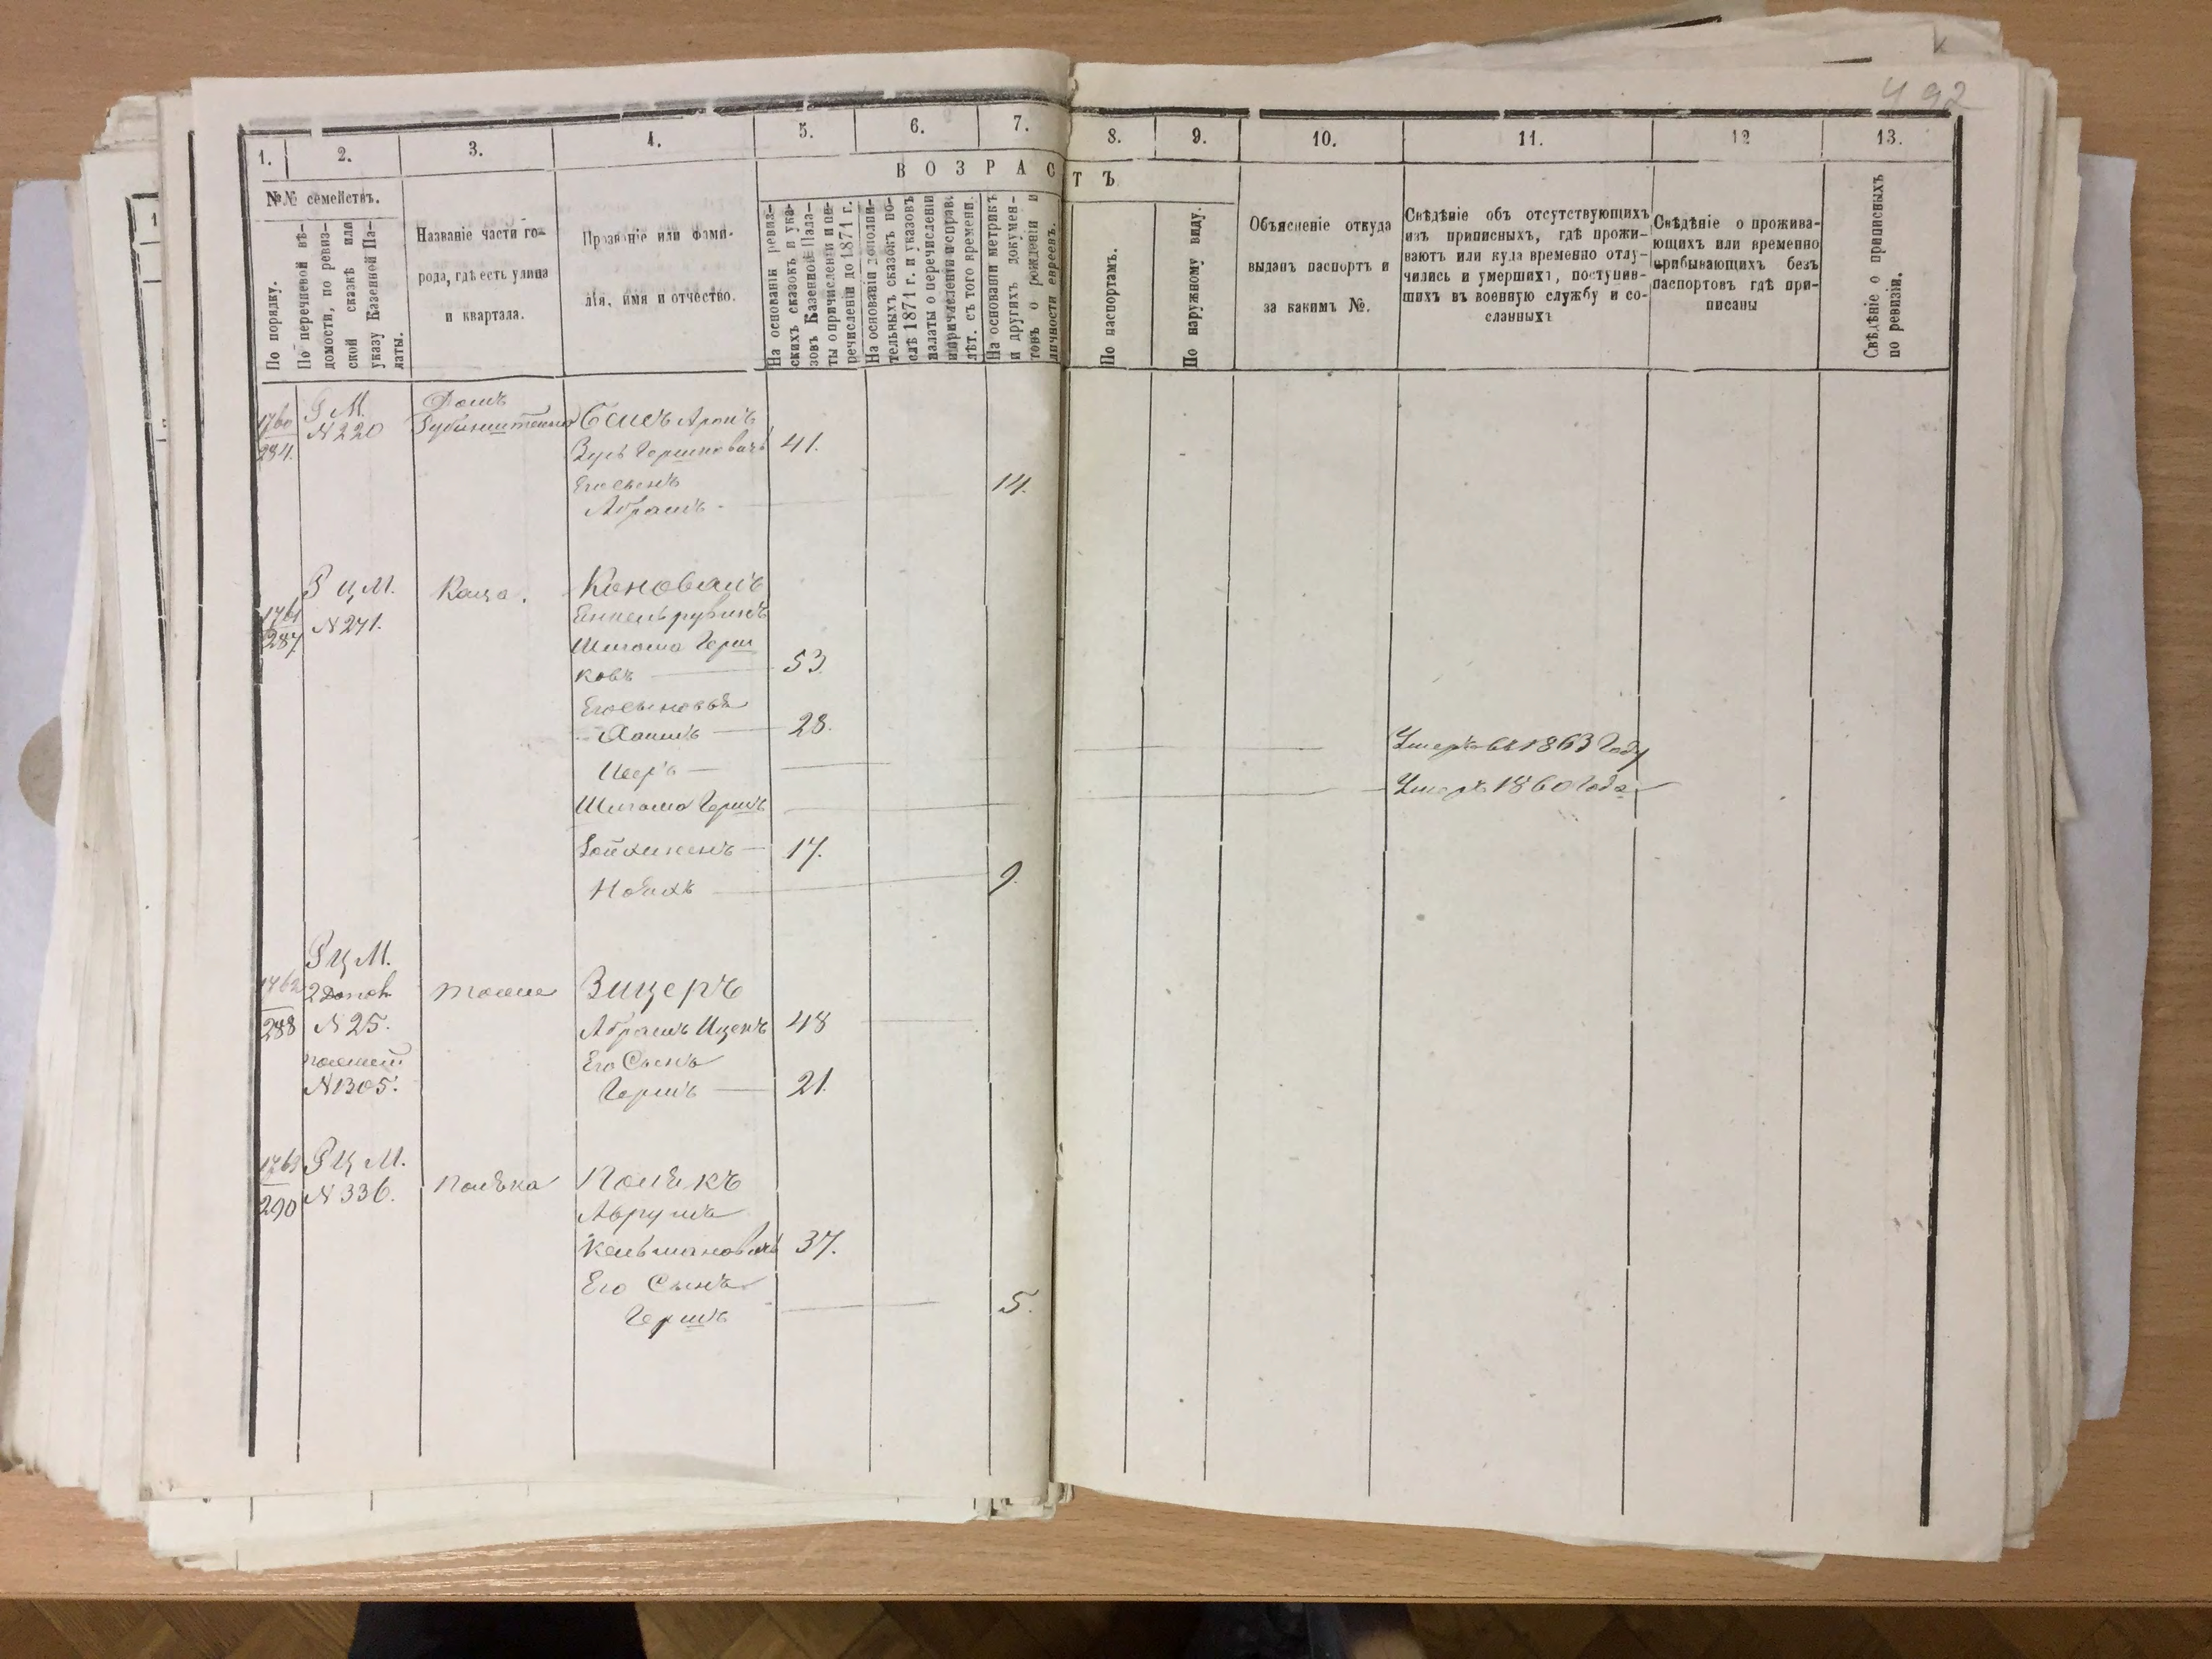 492
1.
2.
3.
4.
5.
6.
7.
8.
9.
10.
11.
12
13.
В О З Р А С Т Ъ
№№ семействъ.
По порядку.
По перечневой вѣ-
домости, по ревиз-
ской сказкѣ или
указу Казенной Па-
латы.
Названіе части го-
рода, гдѣ есть улица
и квартала.
Прозваніе или фами-
лія, имя и отчество.
На основаніи ревиз-
скихъ сказокъ и ука-
зовъ Казенной Пала-
ты о причисленіи и пе-
речисленіи до 1871 г.
На основаніи дополни-
тельныхъ сказокъ по-
слѣ 1871 г. и указовъ
палаты о перечисленіи
и причисленіи исправ.
лѣт. съ того времени.
На основаніи метрикъ
и другихъ докумен-
товъ о рожденіи и
личности евреевъ.
По паспортамъ.
По наружному виду.
Объясненіе откуда
выданъ паспортъ и
за какимъ №.
Свѣдѣніе объ отсутствующихъ
изъ приписныхъ, гдѣ прожи-
ваютъ или куда временно отлу-
чились и умершихъ, поступив-
шихъ въ военную службу и со-
сланныхъ
Свѣдѣніе о прожива-
ющихъ или временно
прибывающихъ безъ
паспортовъ гдѣ при-
писаны
Свѣдѣніе о приписныхъ
по ревизіи.
1760
284.
Р М.
N 220
Домъ
Аронъ
Гершковичъ 41.
Его сынъ
Абрамъ 14.
1761
287
Р ц М.
N 271.
Каца.
Коновалъ
Шлиома Герш
ковъ 53.
Его сыновья
Хаимъ 28.
Исеръ Умеръ въ 1863 Году
Шлиома Гершъ Умеръ 1860 Года
17.
9.
1762
288
Р Ц М.
2 Допов
N 25.
N 1305.
тоже
Зицеръ
Абрамъ Ицекъ 48
Его Сынъ
Гершъ 21.
1763
290
Р Ц М.
N 336.
Поляка
Полякъ
Аврумъ
Кельмановичъ 37.
Его Сынъ
Гершъ 5.